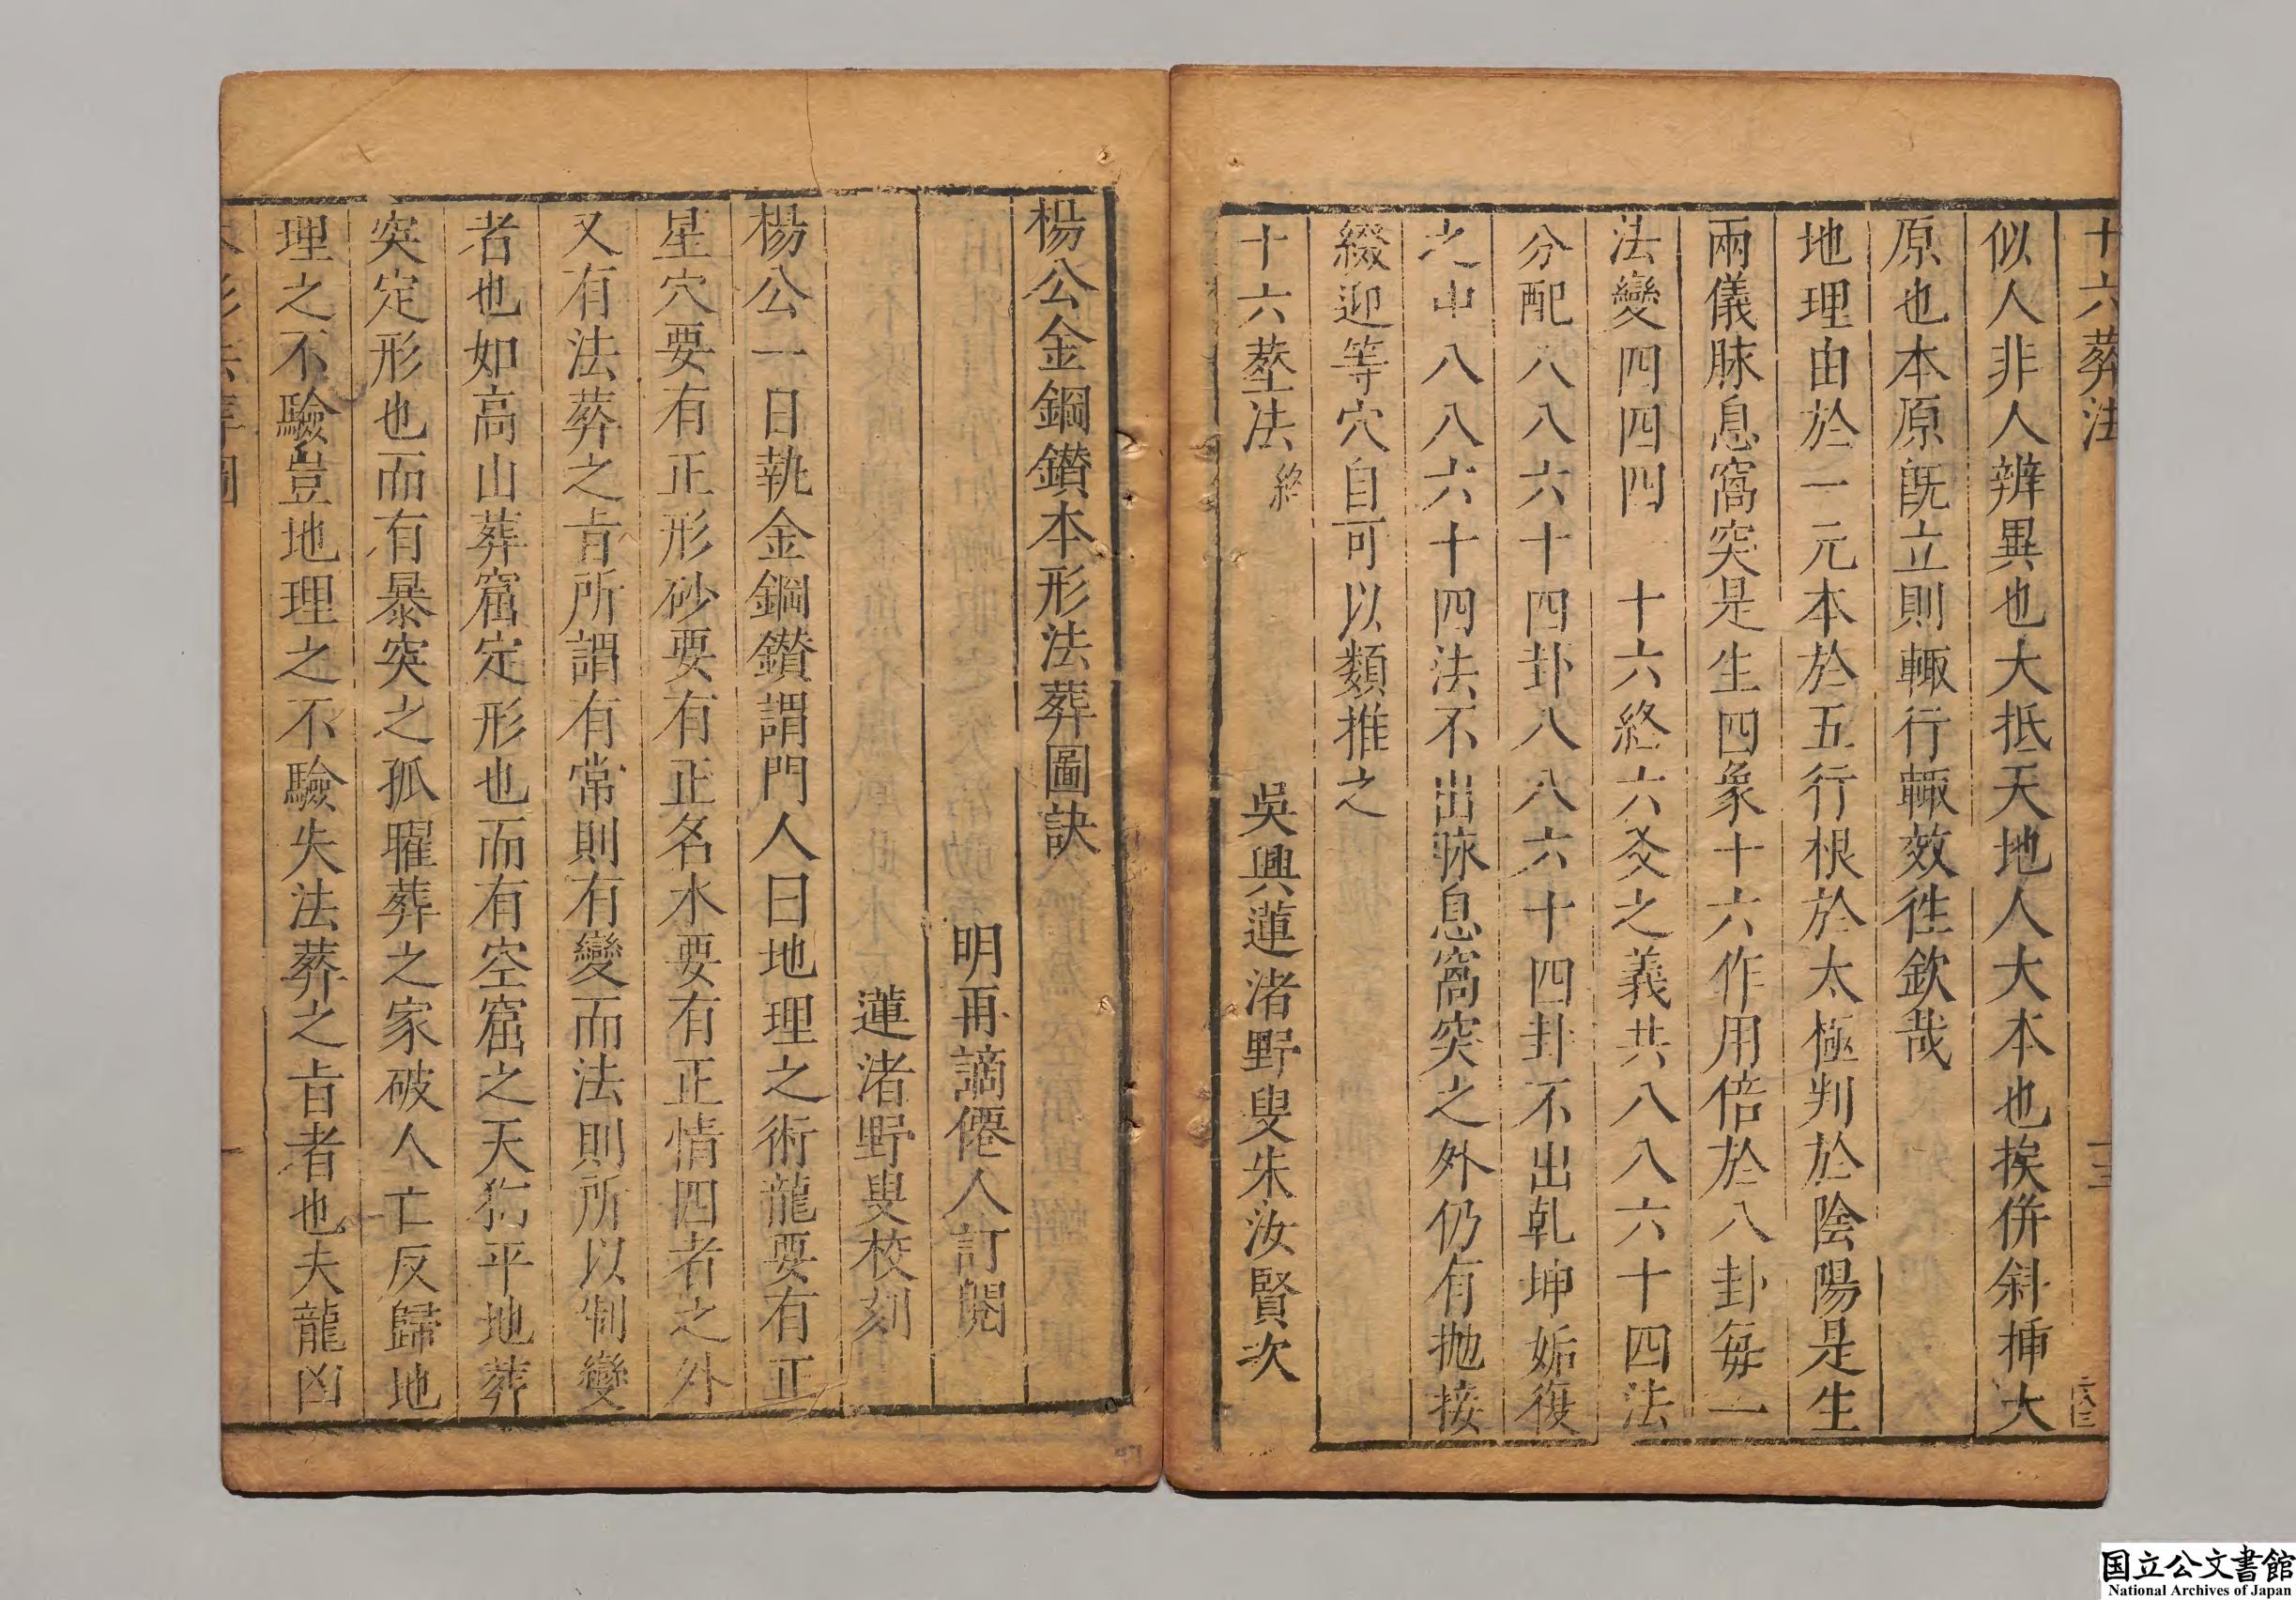 十六葬法 十三
似人非人辨異也大抵天地人大本也挨併斜揷大
原也本原旣立則輙行輙效徃欽哉
地理由於一元本於五行根於太極判於陰陽是生
兩儀脉息窩突是生四象十六作用倍於八卦每一
法變四四四 十六終六爻之義共八八六十四法
分配八八六十四卦八八六十四卦不出乹坤姤復
之中八八六十四法不出脉息窩突之外仍有抛接
綴迎等穴自可以類推之
十六塟法 終 吳興蓮渚野叟朱汝賢次
楊公金鋼鑚本形法葬圖訣
明再謫僊人訂閱
蓮渚野叟校刻
楊公一日執金鋼鑚謂門人曰地理之術龍要有正
星穴要有正形砂要有正名水要有正情四者之外
又有法葬之㫖所謂有常則有變而法則所以制變
者也如高山葬窟定形也而有空窟之天狗平地葬
突定形也而有暴突之孤曜葬之家破人亡反歸地
理之不驗豈地理之不驗失法葬之㫖者也夫龍凶
本形法葬圖 一
国立公文書館
National Archives of Japan